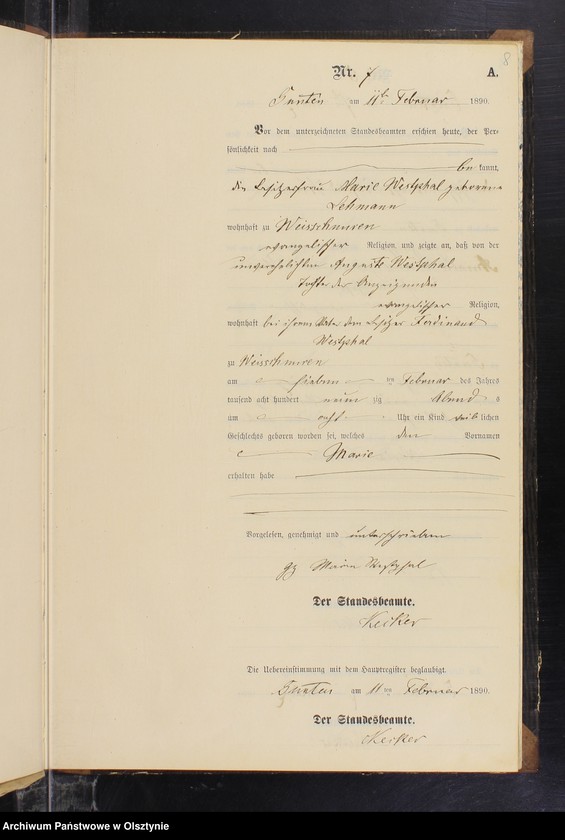 8
Nr. 7 A.
am 11ten Februar 1890.
Vor dem unterzeichneten Standesbeamten erschien heute, der Per-
sönlichkeit nach
be kannt,
die Besitzerfrau Marie Westphal geborene
Lehmann
wohnhaft zu Weisschnuren
evangelischer Religion, und zeigte an, daß von der
unverehelichten Auguste Westphal
Tochter der Anzeigenden
evangelischer Religion,
wohnhaft bei ihrem Vater dem Besitzer Ferdinand
Westphal
zu Weisschnuren
am sieben ten Februar des Jahres
tausend acht hundert neun zig Abend s
um acht Uhr ein Kind weib lichen
Geschlechts geboren worden sei, welches den Vornamen
Marie
erhalten habe
Vorgelesen, genehmigt und unterschrieben
gz Marie Westphal
Der Standesbeamte.
Die Uebereinstimmung mit dem Hauptregister beglaubigt.
am 11 ten Februar 1890.
Der Standesbeamte.
Archiwum Państwowe w Olsztynie